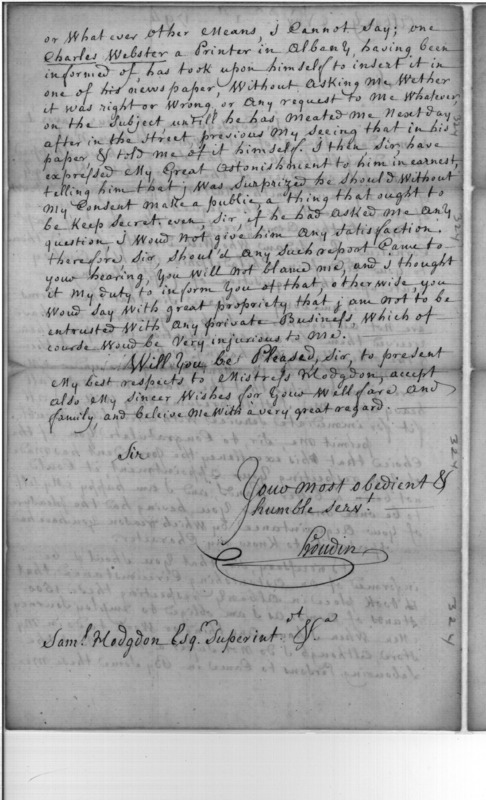 or Whatever other Means, I Cannot Say; one
Charles Webster a Printer in Albany, having been
informed of, has took upon himself to insert it in
one of his newspaper, Without Asking Me Wether
it was right or Wrong, or Any request to Me Whatever,
on the Subject untill he has Meated Me Next day
after in the Street previous My Seeing that in his
paper & told me of it himself. I then Sir, have
expressed My Great Astonishment to him in earnest,
telling him that j Was Surprized he Should Without
My Consent Make a public a thing that ought to
be Keep Secret. even, Sir, if he had asked Me Any
question I Woud Not give him Any Satisfaction.
therefore Sir, Should Any Such report Came to
your hearing, You Will Not blame me, and I thought
it My duty to inform You of that, otherwise, you
Woud Say With great propriety that j am Not to be
entrusted With Any private Business, Which of
course Woud be Very injurious to Me.
Will You be Pleased, Sir, to present
My best respects to Mistress Hodgdon, accept
also My Sincer Wishes for Your Wellfare And
family, and beleive Me With a very great regard.
Sir
Your Most obedient &
humble Servt.
Roudin
Saml. Hodgdon Esqr. Superintdt. &a
324
324
324
324